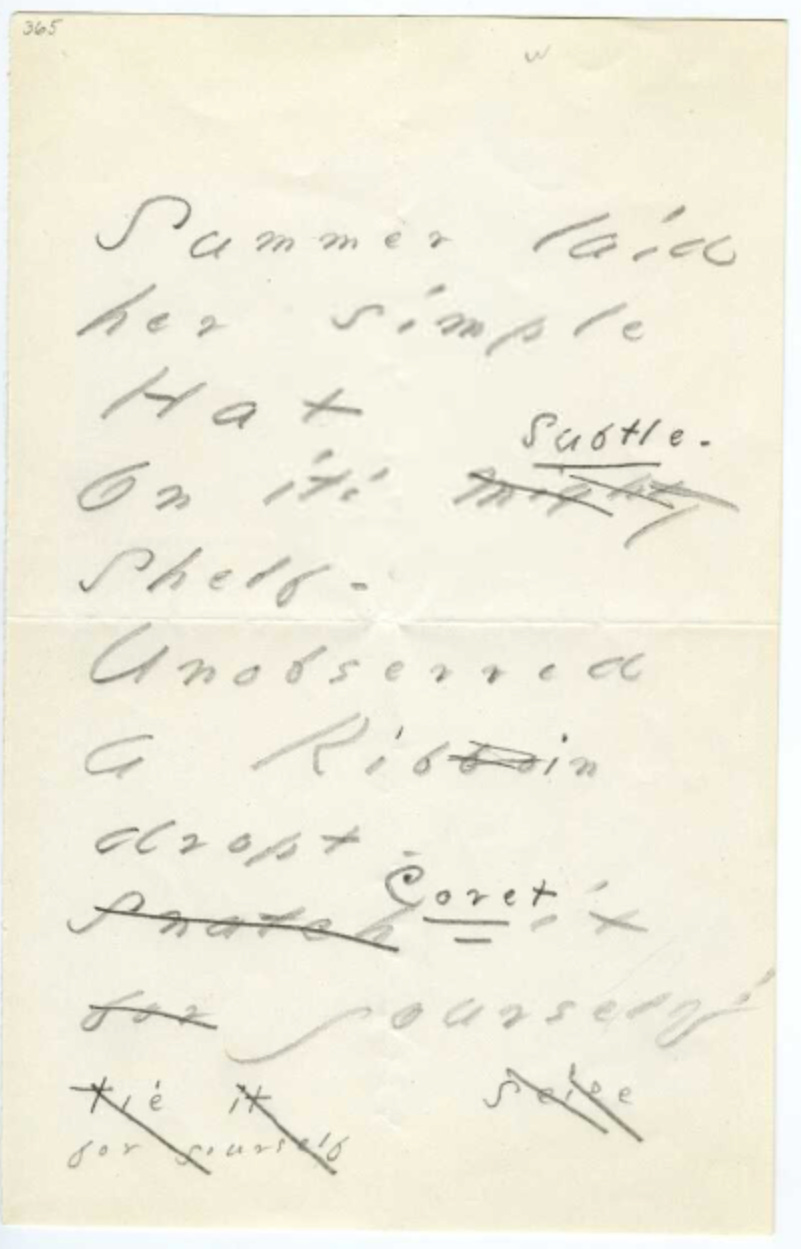 365
w
Summer laid
her simple
Hat
Subtle -
On it's mighty
Shelf -
Unobserved
a Ribbin
dropt -
Covet
Snatch it
for yourself!
tie it seize
for yourself